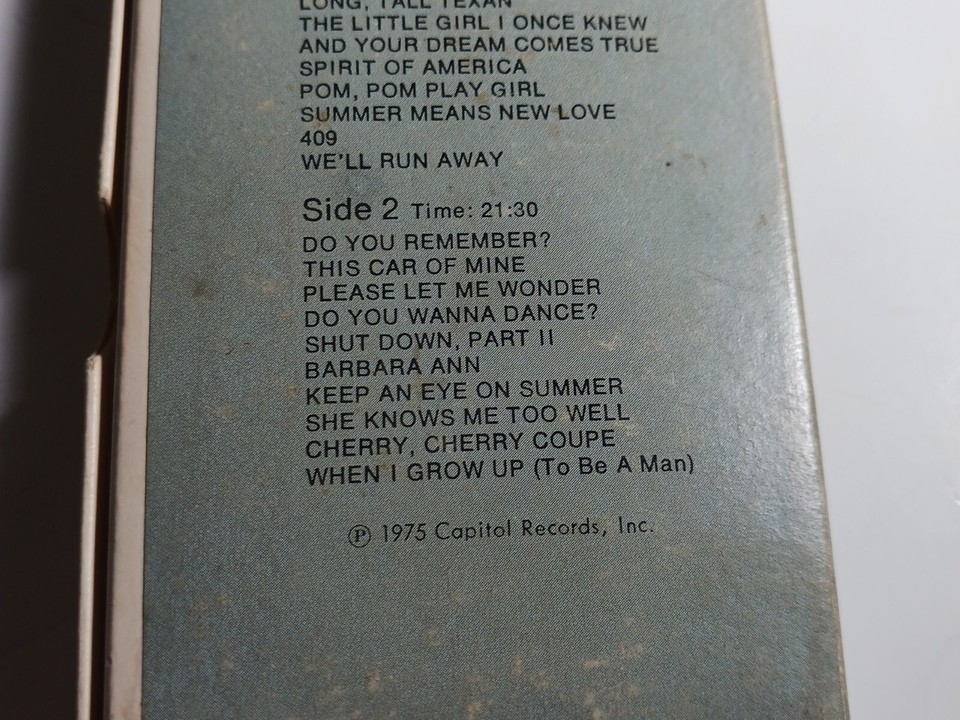 LONG, TALL TEXAN
THE LITTLE GIRL I ONCE KNEW
AND YOUR DREAM COMES TRUE
SPIRIT OF AMERICA
POM, POM PLAY GIRL
SUMMER MEANS NEW LOVE
409
WE'LL RUN AWAY
Side 2 Time: 21:30
DO YOU REMEMBER?
THIS CAR OF MINE
PLEASE LET ME WONDER
DO YOU WANNA DANCE?
SHUT DOWN, PART II
BARBARA ANN
KEEP AN EYE ON SUMMER
SHE KNOWS ME TOO WELL
CHERRY, CHERRY COUPE
WHEN I GROW UP (To Be A Man)
℗ 1975 Capitol Records, Inc.